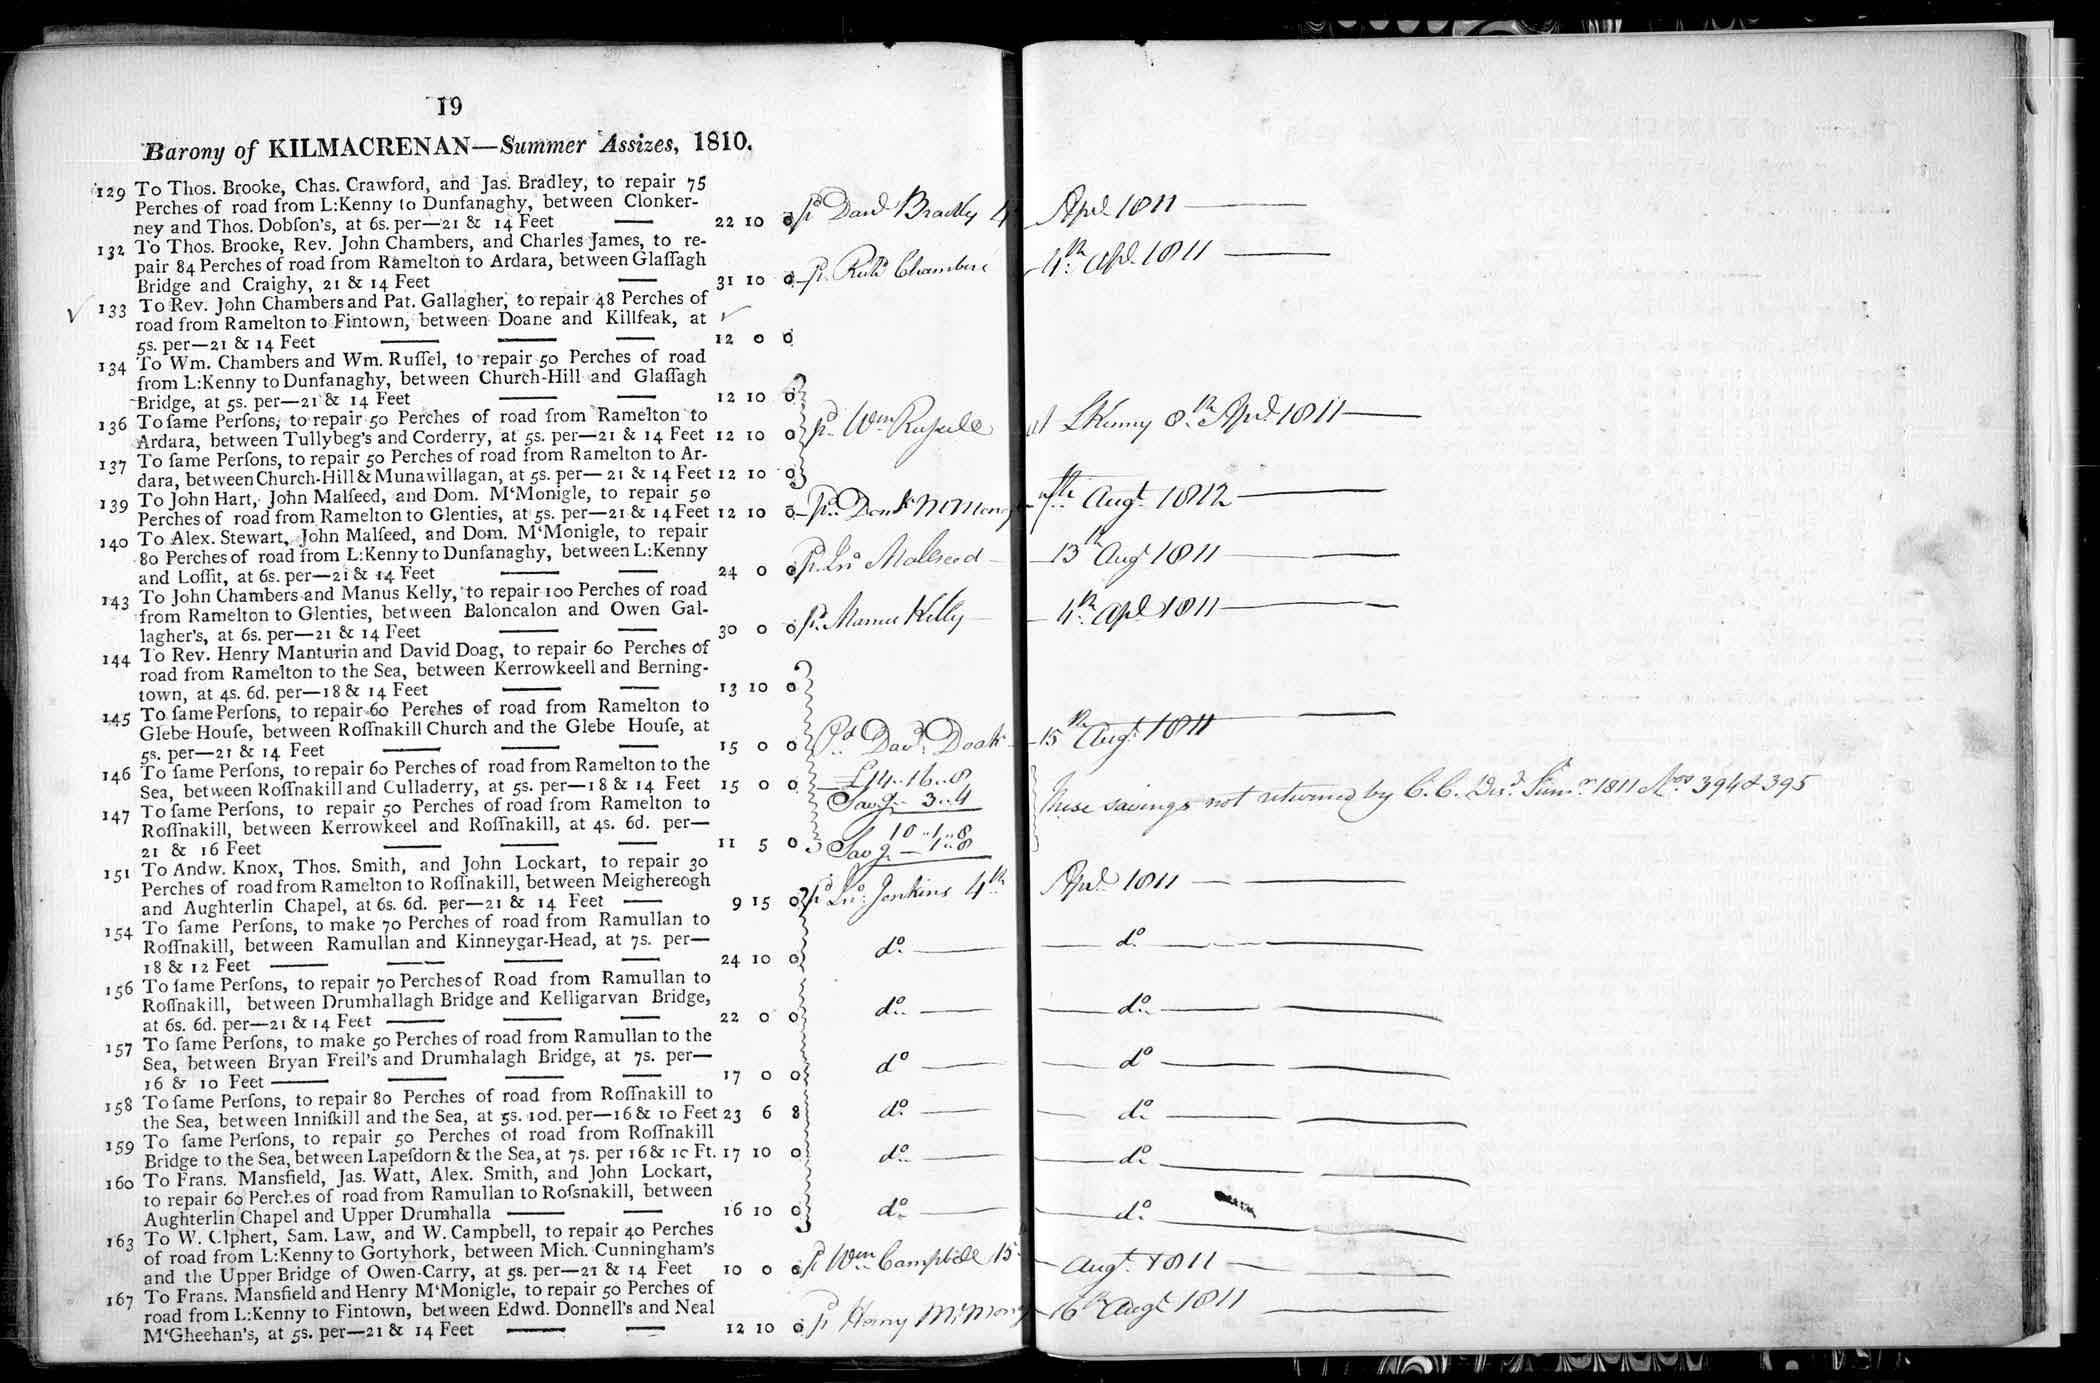 19
Barony of KILMACRENAN—Summer Assizes, 1810.
129 To Thos. Brooke, Chas. Crawford, and Jas. Bradley, to repair 75
Perches of road from L:Kenny to Dunfanaghy, between Clonker-
ney and Thos. Dobſon's, at 6s. per—21 & 14 Feet — 22 10 0 Pd Davd Bradley 4th Apl. 1811
132 To Thos. Brooke, Rev. John Chambers, and Charles James, to re-
pair 84 Perches of road from Ramelton to Ardara, between Glaſſagh
Bridge and Craighy, 21 & 14 Feet — 31 10 0 Pd. Chambers 4th. Apl. 1811
133 To Rev. John Chambers and Pat. Gallagher, to repair 48 Perches of
road from Ramelton to Fintown, between Doane and Killfeak, at
5s. per—21 & 14 Feet — — — 12 0 0
134 To Wm. Chambers and Wm. Ruſſel, to repair 50 Perches of road
from L:Kenny to Dunfanaghy, between Church-Hill and Glaſſagh
Bridge, at 5s. per—21 & 14 Feet — — 12 10 0
136 To ſame Perſons, to repair 50 Perches of road from Ramelton to
Ardara, between Tullybeg's and Corderry, at 5s. per—21 & 14 Feet 12 10 0 Pd. Wm Russell at LKenny 8th. Apl. 1811
137 To ſame Perſons, to repair 50 Perches of road from Ramelton to Ar-
dara, between Church-Hill & Munawillagan, at 5s. per— 21 & 14 Feet 12 10 0
139 To John Hart, John Malſeed, and Dom. M'Monigle, to repair 50
Perches of road from Ramelton to Glenties, at 5s. per—21 & 14 Feet 12 10 0 Pd. Domk McMong Augt. 1812
140 To Alex. Stewart, John Malſeed, and Dom. M'Monigle, to repair
80 Perches of road from L:Kenny to Dunfanaghy, between L:Kenny
and Loſſit, at 6s. per—21 & 14 Feet — — 24 0 0 Pd. Jno Malseed 13th Augt 1811
143 To John Chambers and Manus Kelly, to repair 100 Perches of road
from Ramelton to Glenties, between Baloncalon and Owen Gal-
lagher's, at 6s. per—21 & 14 Feet — — 30 0 0 Pd. Manus Kelly 4th. Apl 1811
144 To Rev. Henry Manturin and David Doag, to repair 60 Perches of
road from Ramelton to the Sea, between Kerrowkeell and Berning-
town, at 4s. 6d. per—18 & 14 Feet — — 13 10 0
145 To ſame Perſons, to repair 60 Perches of road from Ramelton to
Glebe Houſe, between Roſſnakill Church and the Glebe Houſe, at
5s. per—21 & 14 Feet — — — 15 0 0 Pd. Davd. Doak 15th Augt. 1811
146 To ſame Perſons, to repair 60 Perches of road from Ramelton to the
Sea, between Roſſnakill and Culladerry, at 5s. per—18 & 14 Feet 15 0 0 £14..16..8
Savg. 3..4 These savings not returned by C. C. 1811 Nos 394 & 395
147 To ſame Perſons, to repair 50 Perches of road from Ramelton to
Roſſnakill, between Kerrowkeel and Roſſnakill, at 4s. 6d. per—
21 & 16 Feet — — — 11 5 0 10..1..8
Savg. — 1..8
151 To Andw. Knox, Thos. Smith, and John Lockart, to repair 30
Perches of road from Ramelton to Roſſnakill, between Meighereogh
and Aughterlin Chapel, at 6s. 6d. per—21 & 14 Feet — 9 15 0 Pd Jno. Jenkins 4th Apl. 1811
154 To ſame Perſons, to make 70 Perches of road from Ramullan to
Roſſnakill, between Ramullan and Kinneygar-Head, at 7s. per—
18 & 12 Feet — — — — 24 10 0 do. — do.
156 To ſame Perſons, to repair 70 Perches of Road from Ramullan to
Roſſnakill, between Drumhallagh Bridge and Kelligarvan Bridge,
at 6s. 6d. per—21 & 14 Feet — — — 22 0 0 do. — do.
157 To ſame Perſons, to make 50 Perches of road from Ramullan to the
Sea, between Bryan Freil's and Drumhalagh Bridge, at 7s. per—
16 & 10 Feet — — — — 17 0 0 do — do
158 To ſame Perſons, to repair 80 Perches of road from Roſſnakill to
the Sea, between Inniſkill and the Sea, at 5s. 10d. per—16 & 10 Feet 23 6 8 do. — do.
159 To ſame Perſons, to repair 50 Perches of road from Roſſnakill
Bridge to the Sea, between Lapeſdorn & the Sea, at 7s. per 16 & 10 Ft. 17 10 0 do. — do.
160 To Frans. Mansfield, Jas. Watt, Alex. Smith, and John Lockart,
to repair 60 Perches of road from Ramullan to Roſsnakill, between
Aughterlin Chapel and Upper Drumhalla — — 16 10 0 do. — do.
163 To W. Olphert, Sam. Law, and W. Campbell, to repair 40 Perches
of road from L:Kenny to Gortyhork, between Mich. Cunningham's
and the Upper Bridge of Owen-Carry, at 5s. per—21 & 14 Feet 10 0 0 Pd Wm Campbell 15 Augt. 1811
167 To Frans. Mansfield and Henry M'Monigle, to repair 50 Perches of
road from L:Kenny to Fintown, between Edwd. Donnell's and Neal
M'Gheehan's, at 5s. per—21 & 14 Feet — — 12 10 0 Pd Henry McMong 16th Augt. 1811